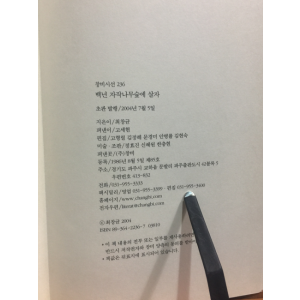 창비시선 236
백년 자작나무숲에 살자
초판 발행/2004년 7월 5일
지은이/최창균
펴낸이/고세현
편집/고형렬 김정혜 문경미 안병률 김현숙
미술·조판/정효진 신혜원 한충현
펴낸곳/(주)창비
등록/1986년 8월 5일 제85호
주소/경기도 파주시 교하읍 문발리 파주출판도시 42블럭 5
우편번호 413-832
전화/031-955-3333
팩시밀리/영업 031-955-3399·편집 031-955-3400
홈페이지/www.changbi.com
전자우편/literat@changbi.com
ⓒ 최창균 2004
ISBN 89-364-2236-7 03810
* 이 책 내용의 전부 또는 일부를
반드시 저작권자와 창비 양측의 동의를
* 책값은 뒤표지에 표시되어 있습니다.